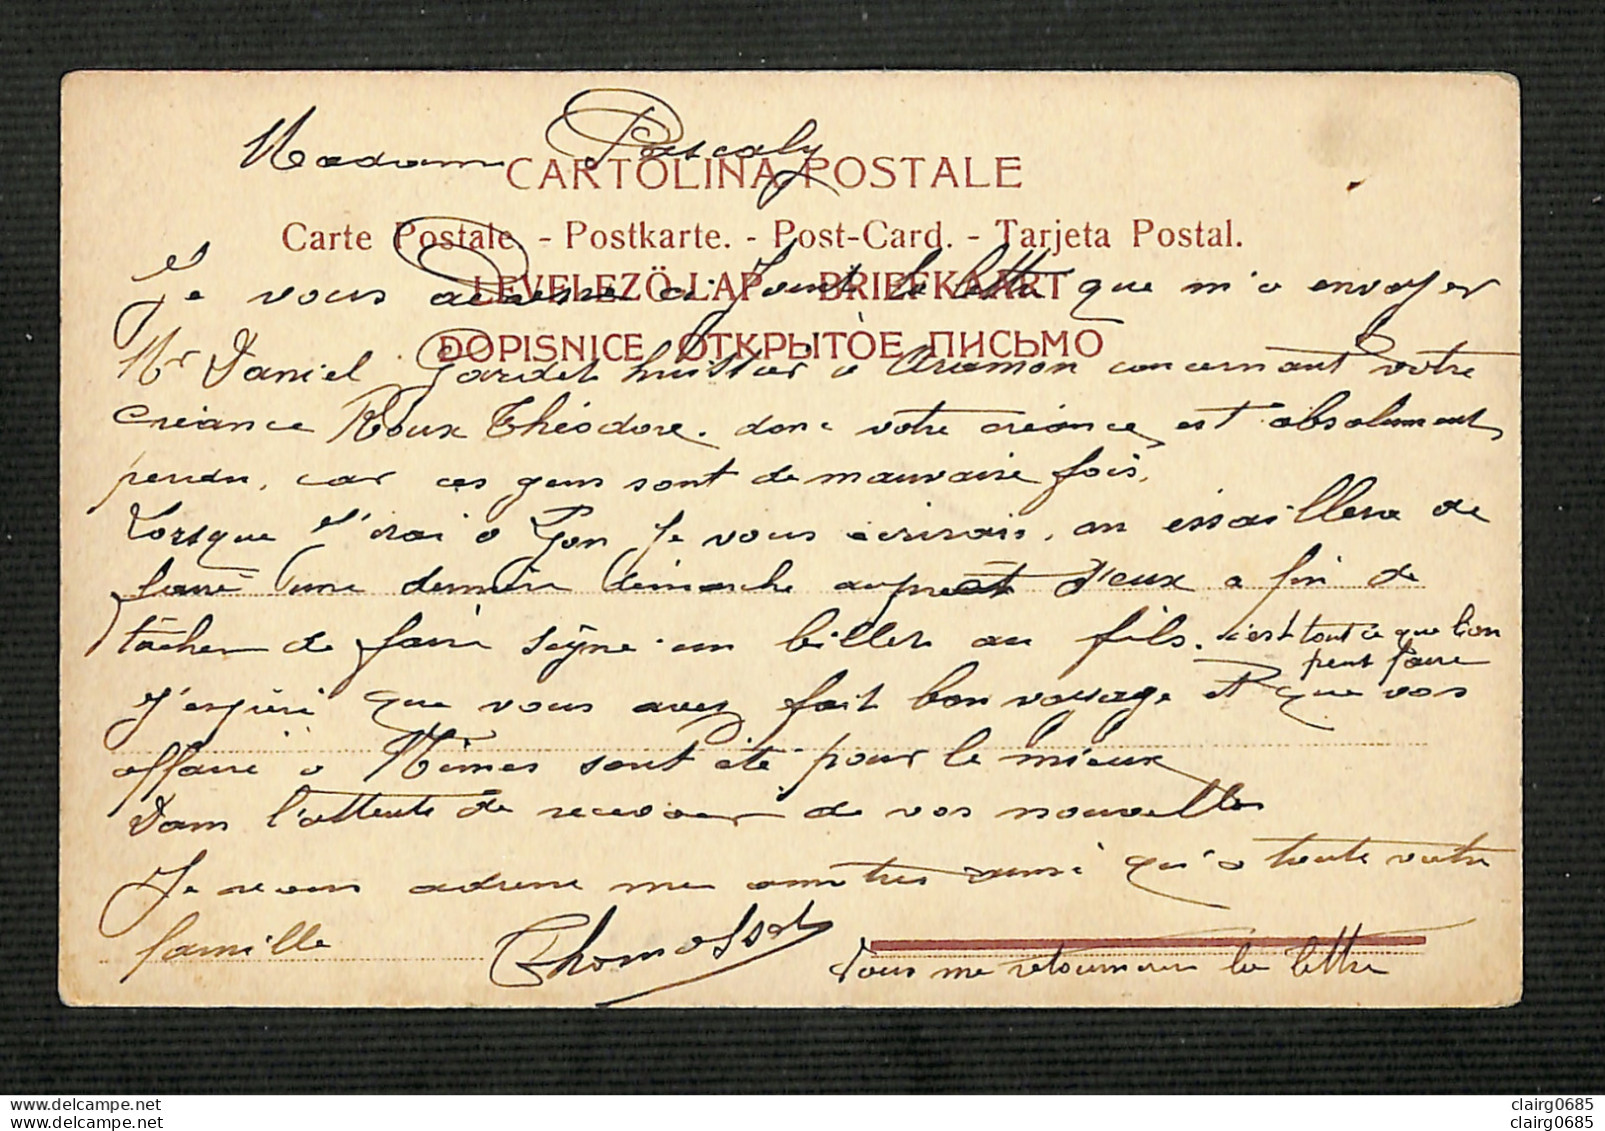 Madame Pascaly
CARTOLINA POSTALE
Carte Postale. - Postkarte. - Post-Card. - Tarjeta Postal.
LEVELEZÖ-LAP - BRIEFKAART
Je vous adresse ci Joint la lettre que m'a envoyer
DOPISNICE ОТКРЫТОЕ ПИСЬМО
Mr Daniel Gardet huissier a Aramon concernant votre
créance Roux Théodore. donc votre créance est absolument
perdu, car ces gens sont de mauvaise fois.
Lorsque J'irai a Lyon Je vous écrirais, on essaillera de
faire une derniere démarche aupret d'eux a fin de
tâcher de faire signe un billet au fils. c'est tout ce que l'on
peut faire
J'espère que vous avez fait bon voyage et que vos
affaire a Nimes sont été pour le mieux
Dans l'attente de recevoir de vos nouvelles
Je vous adresse mes amitiés ainsi qu'a toute votre
famille
Thomasset
Vous me retournerez la lettre
clairg0685
clairg0685
clairg0685
clairg0685